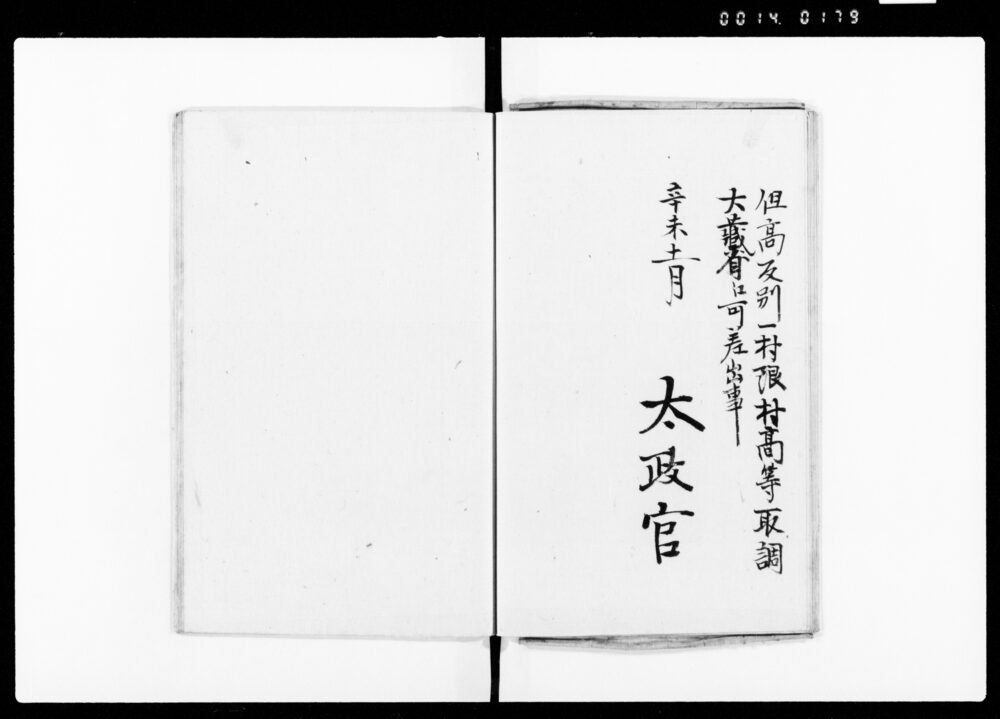 0014 0179
但高反別一村限村高等取調
大蔵省江可差出事
辛未十一月
太政官